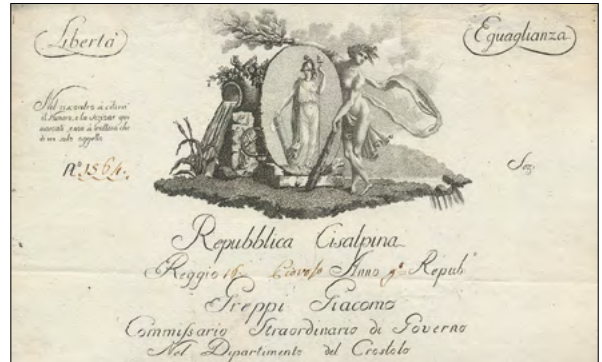 Libertà
Eguaglianza
Nel riscontro si citerà
il Numero, e la Sezione qui
di un solo oggetto
N.° 1564.
Sez.
Repubblica Cisalpina
Reggio 16. Piovoso Anno 9.° Repub.°
Greppi Giacomo
Commissario Straordinario di Governo
Nel Dipartimento del Crostolo